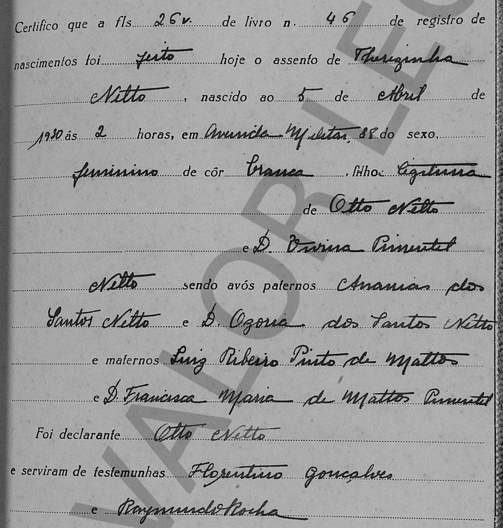 Certifico que a fls 26v. de livro n. 46 de registro de
nascimentos foi feito hoje o assento de Therezinha
Netto, nascido ao 5 de Abril de
1930 ás 2 horas, em Avenida Mem de Sá, 38 do sexo
feminino de côr branca, filho legitima
de Otto Netto
e D. Pimentel
Netto sendo avós paternos Ananias dos
Santos Netto e D. Ozoria dos Santos Netto
e maternos Luiz Ribeiro Pinto de Mattos
e D. Francisca Maria de Mattos Pimentel
Foi declarante Otto Netto
e serviram de testemunhas Florentino Gonçalves
e Raymundo Rocha
VALOR LEG